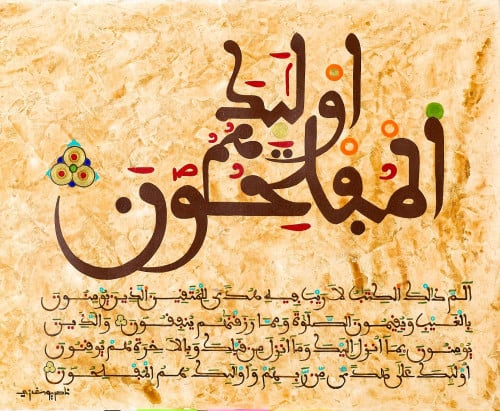 اولئك
هم
المفلحون
الم ذالك الكتب لا ريب فيه هدى للمتقين الذين يومنون
بالغيب ويقيمون الصلوة ومما رزقنهم ينفقون والذين
يومنون بما انزل اليك وما انزل من قبلك وبالاخرة هم يوقنون
اولئك على هدى من ربهم واولئك هم المفلحون